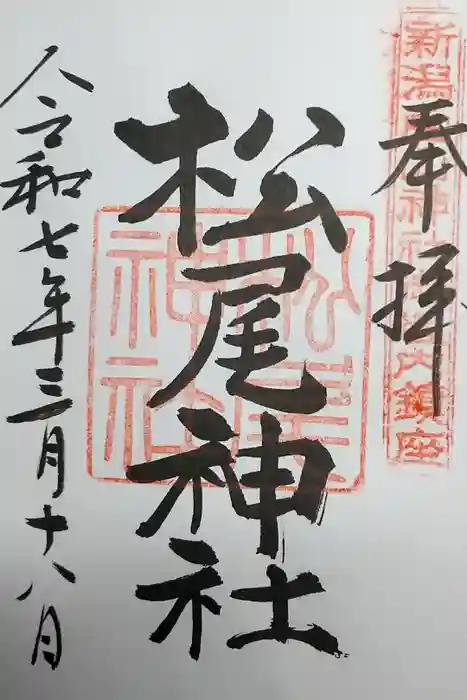 奉拝
新潟
神社境内鎮座
松尾神社
松尾神社
令和七年三月十八日